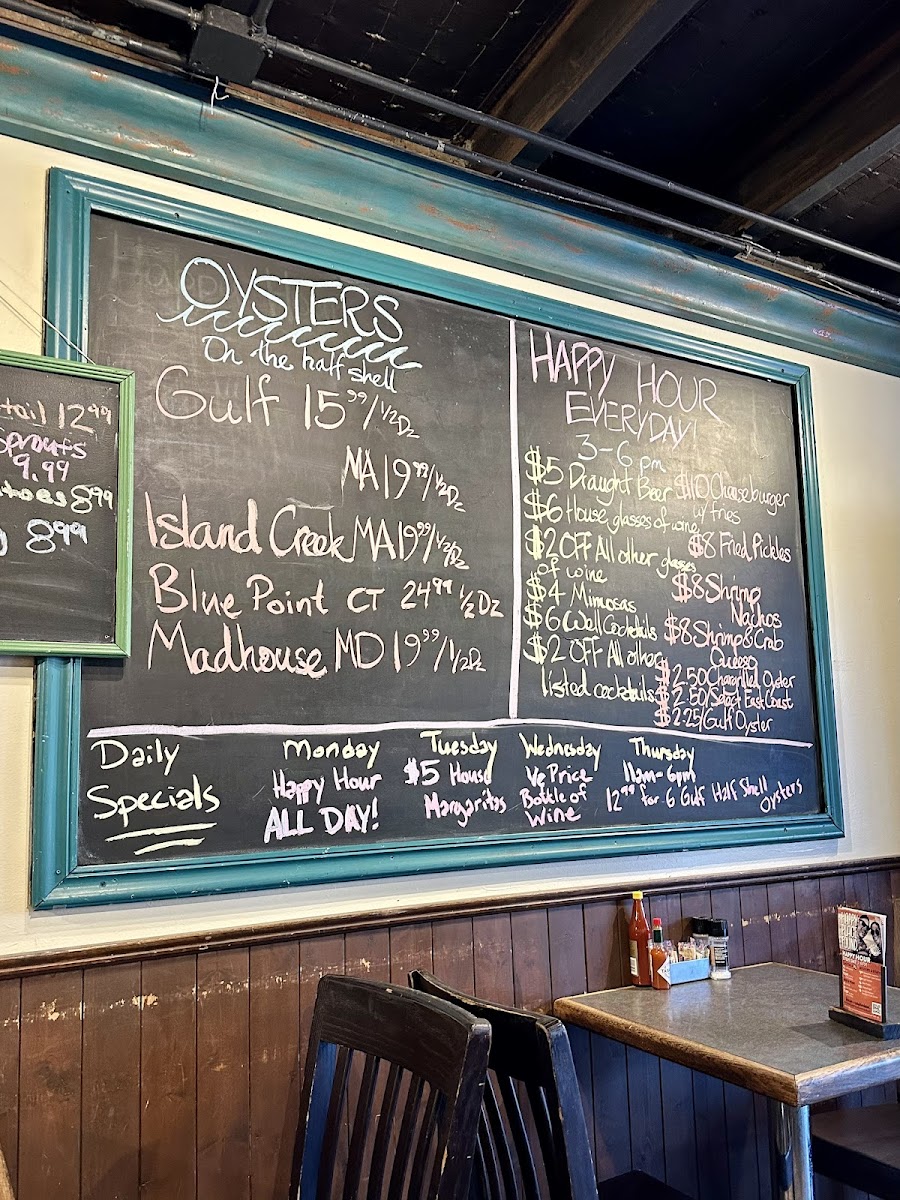 12⁹⁹
9.99
8⁹⁹
8⁹⁹
OYSTERS
On the half shell
Gulf 15⁹⁹/½Dz
MA 19⁹⁹/½Dz
Island Creek MA 19⁹⁹/½Dz
Blue Point CT 24⁹⁹ ½Dz
Madhouse MD 19⁹⁹/½Dz
HAPPY HOUR
EVERYDAY!
3-6 pm
$5 Draught Beer
$6 House glasses of wine
$2 OFF All other glasses
of wine
$4 Mimosas
$6 Well Cocktails
$2 OFF All other
listed cocktails
$10 Cheeseburger
w/ fries
$8 Fried Pickles
$8 Shrimp
Nachos
$8 Shrimp & Crab
Queso
$2.50 Chargrilled Oyster
$2.50/Select East Coast
$2.25/Gulf Oyster
Daily
Specials
Monday
Happy Hour
ALL DAY!
Tuesday
$5 House
Margaritas
Wednesday
½ Price
Bottle of
Wine
Thursday
11am-6pm
12⁹⁹ for 6 Gulf Half Shell
Oysters
HAPPY HOUR